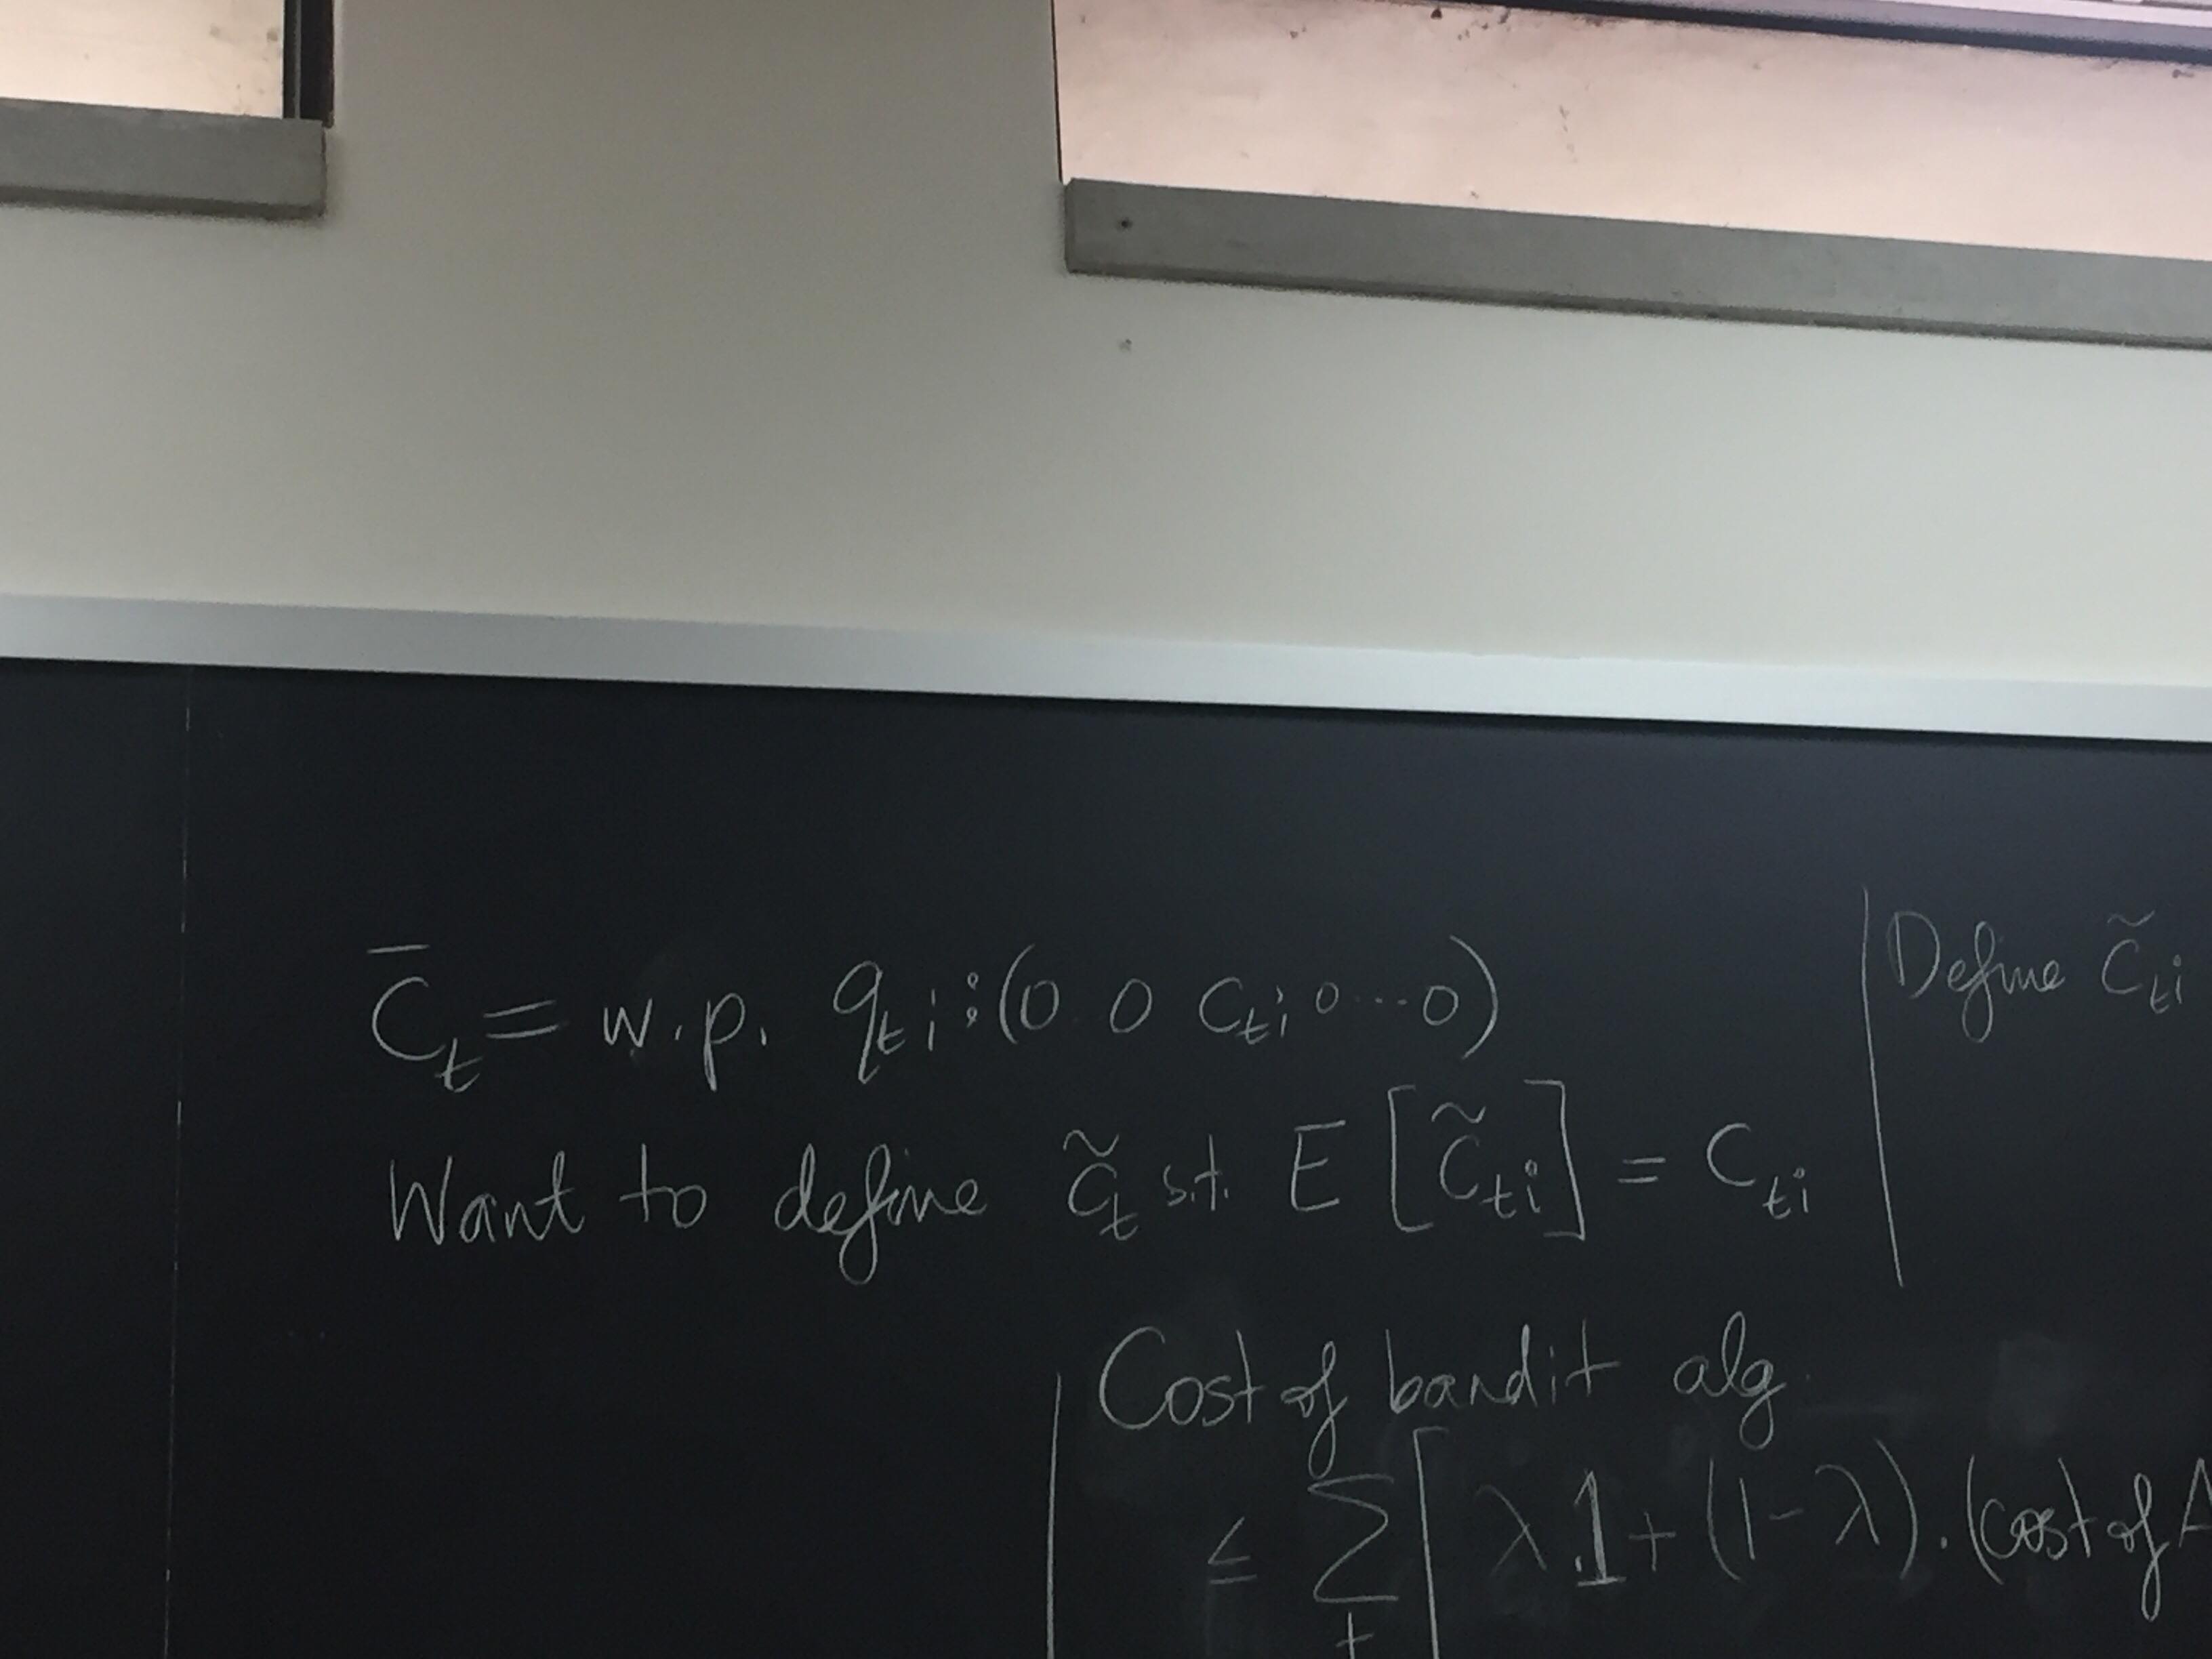 C̄_t = w.p. q_ti : (0 0 C_ti 0 ... 0)
Want to define c̃_t s.t. E [c̃_ti] = C_ti
Define c̃_ti
Cost of bandit alg.
≤ Σ_t [ λ.1 + (1-λ).(cost of A